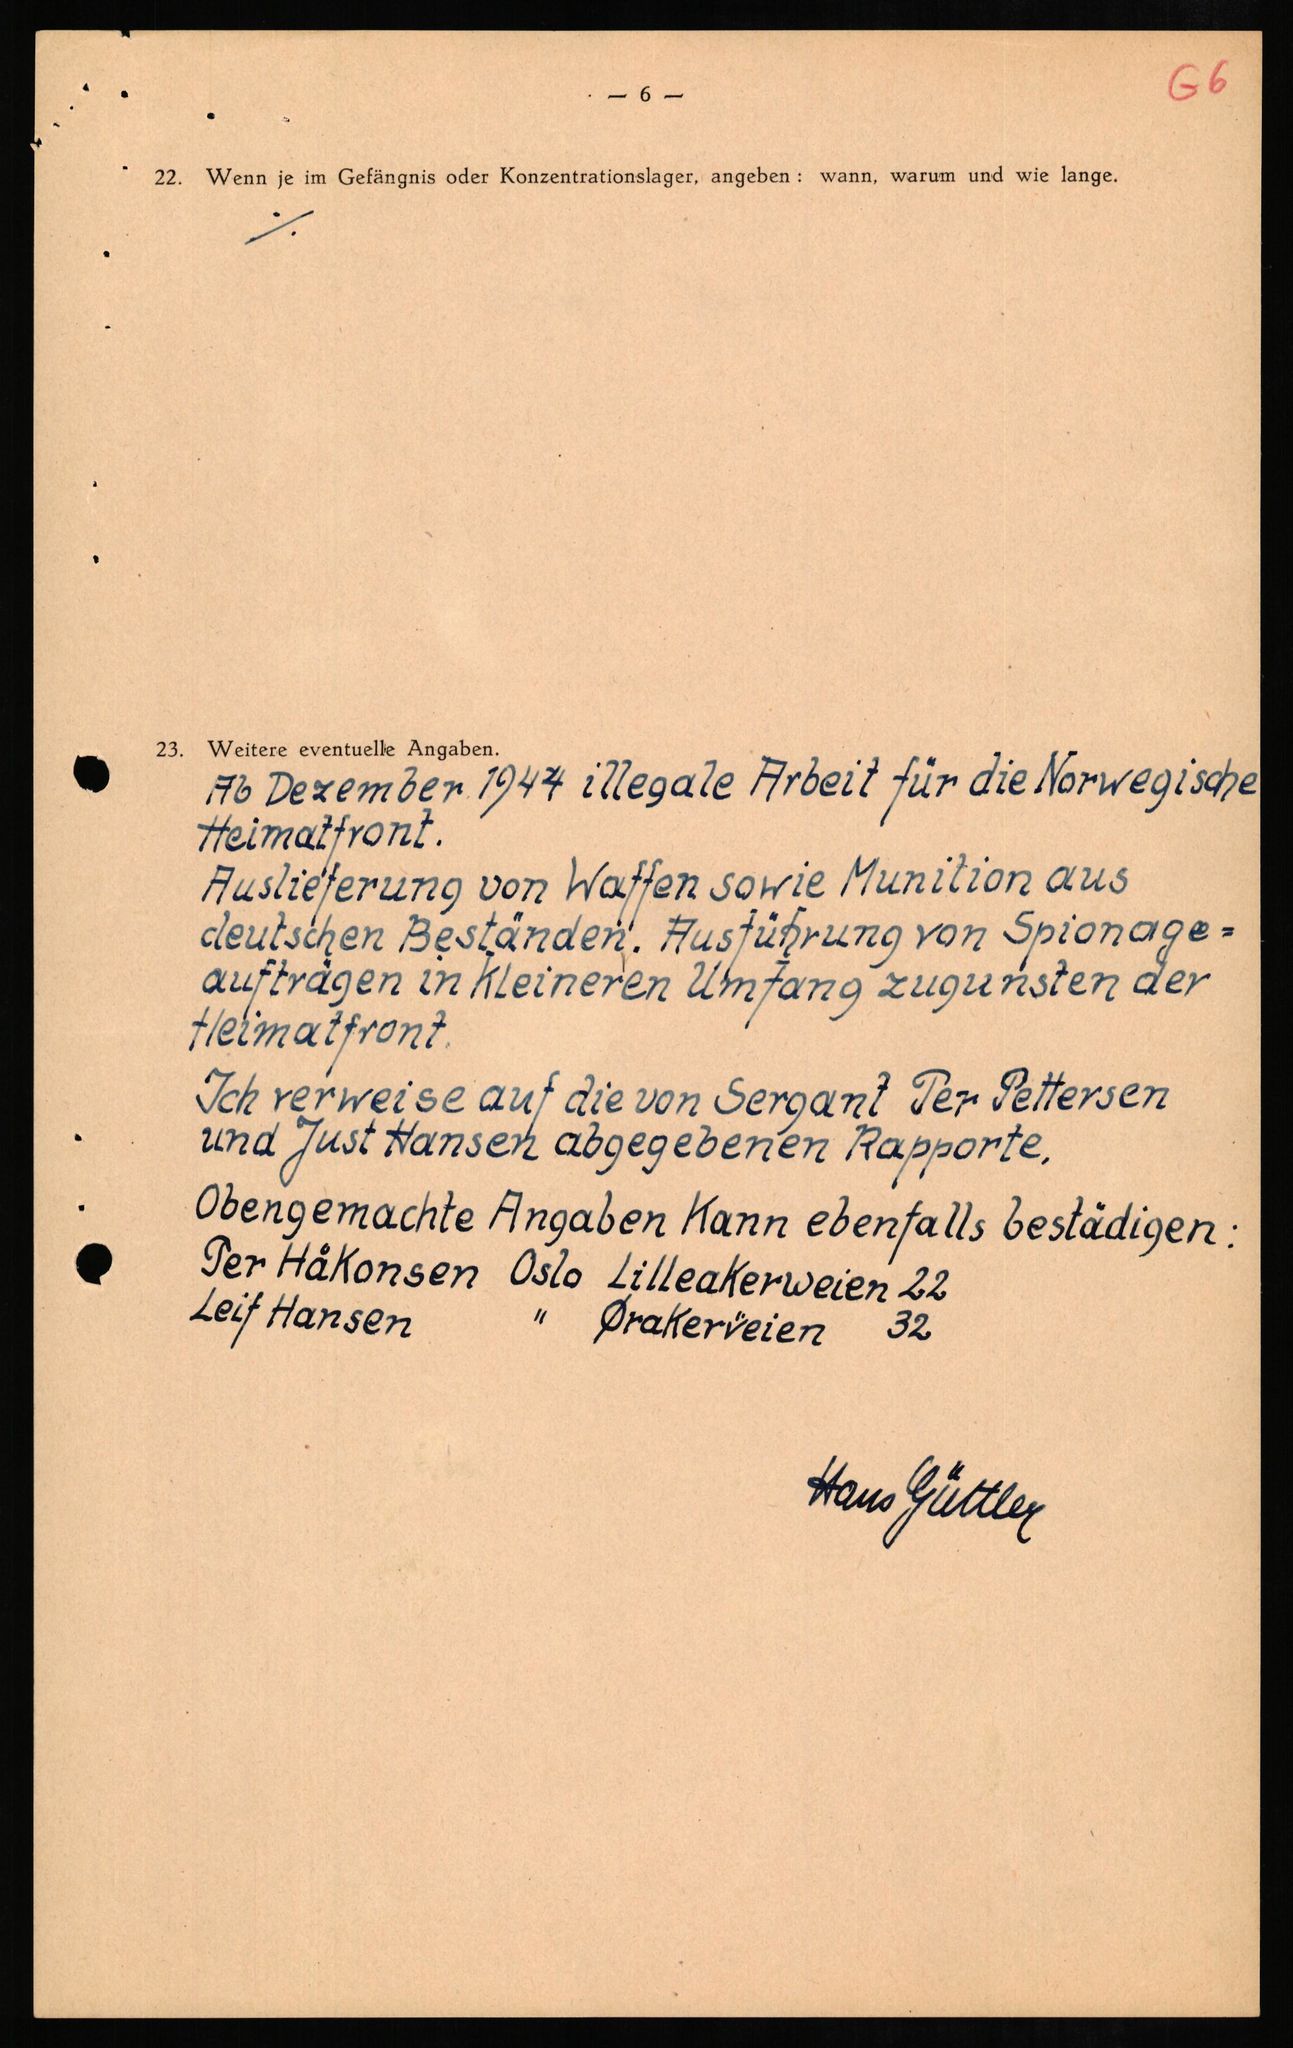 — 6 —
G 6
22. Wenn je im Gefängnis oder Konzentrationslager, angeben: wann, warum und wie lange.
·/.
23. Weitere eventuelle Angaben.
Ab Dezember 1944 illegale Arbeit für die Norwegische
Heimatfront.
Auslieferung von Waffen sowie Munition aus
deutschen Beständen. Ausführung von Spionage=
aufträgen in kleineren Umfang zugunsten der
Heimatfront.
Ich verweise auf die von Sergant Per Pettersen
und Just Hansen abgegebenen Rapporte.
Obengemachte Angaben kann ebenfalls bestädigen:
Per Håkonsen Oslo Lilleakerweien 22
Leif Hansen " Ørakerveien 32
Hans Güttler